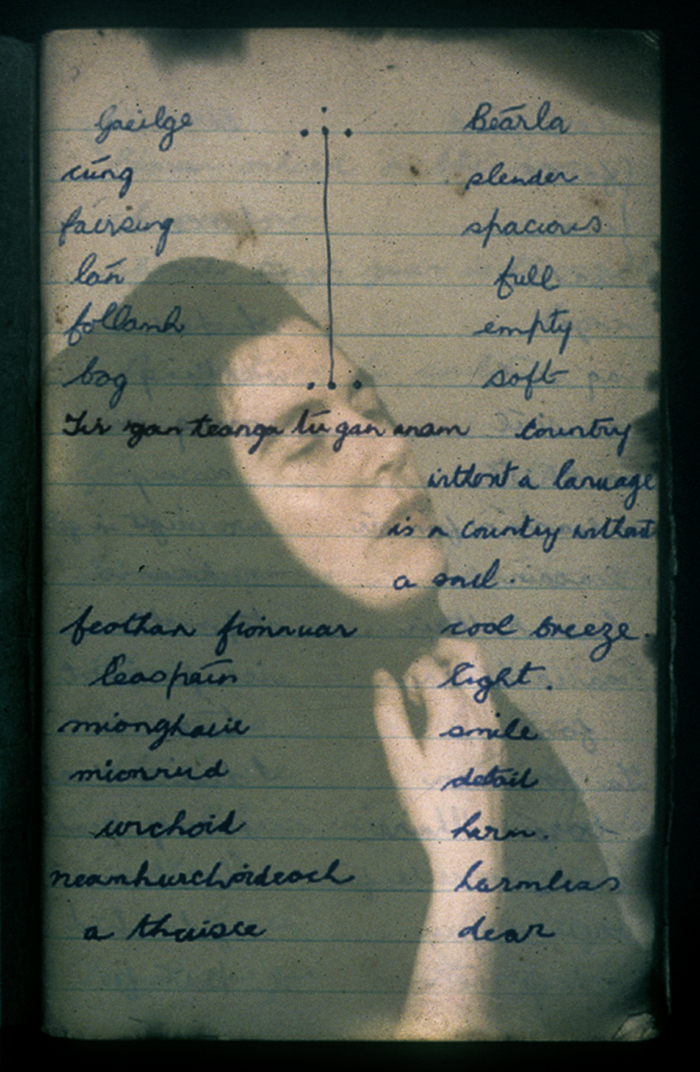 Gaeilge Béarla
cúng slender
fairsing spacious
lán full
follamh empty
bog soft
Tír gan teanga tír gan anam country
without a lanuage
is a country without
a soul.
feothan fionnuar cool breeze.
leaspáin light.
miongháire smile
mionrud detail
urchoid harm.
neamhurchóideach harmless
a thaisce dear